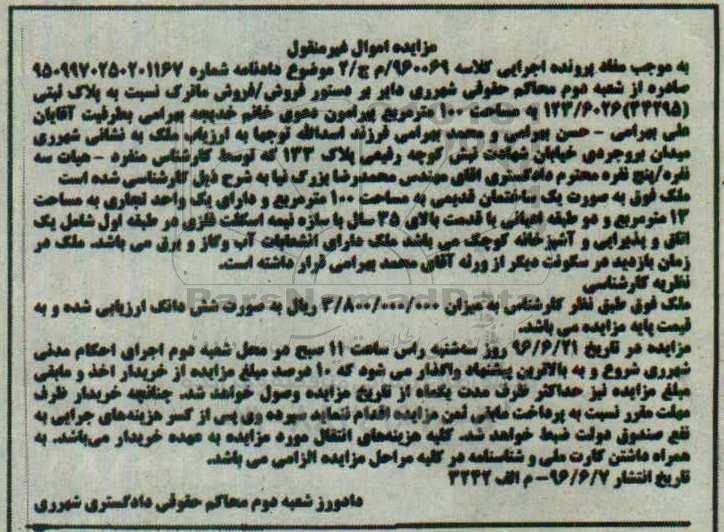 مزایده اموال غیرمنقول
به موجب مفاد پرونده اجرایی کلاسه ۹۶۰۰۶۹/م ج/۲ موضوع دادنامه شماره ۹۵۰۹۹۷۰۲۵۰۲۰۱۱۶۷
صادره از شعبه دوم محاکم حقوقی شهرری دایر بر دستور فروش/فروش ماترک نسبت به پلاک ثبتی
(۳۴۲۹۵)۱۲۳/۶۰۲۶ به مساحت ۱۰۰ مترمربع پیرامون دعوی خانم خدیجه بهرامی بطرفیت آقایان
علی بهرامی - حسن بهرامی و محمد بهرامی فرزند اسدالله توجها به ارزیابی ملک به نشانی شهرری
میدان بروجردی خیابان شهامت نبش کوچه رفیعی پلاک ۱۳۳ که توسط کارشناس منفرد - هیات سه
نفره/پنج نفره محترم دادگستری اقای مهندس محمدرضا بزرگ نیا به شرح ذیل کارشناسی شده است
ملک فوق به صورت یک ساختمان قدیمی به مساحت ۱۰۰ مترمربع و دارای یک واحد تجاری به مساحت
۱۳ مترمربع و دو طبقه اعیانی با قدمت بالای ۳۵ سال با سازه نیمه اسکلت فلزی در طبقه اول شامل یک
اتاق و پذیرایی و آشپزخانه کوچک می باشد ملک دارای انشعابات آب وگاز و برق می باشد. ملک در
زمان بازدید در سکونت دیگر از ورثه آقای محمد بهرامی قرار داشته است.
نظریه کارشناسی
ملک فوق طبق نظر کارشناس به میزان ۳/۸۰۰/۰۰۰/۰۰۰ ریال به صورت شش دانگ ارزیابی شده و به
قیمت پایه مزایده می باشد.
مزایده در تاریخ ۹۶/۶/۲۱ روز سه‌شنبه راس ساعت ۱۱ صبح در محل شعبه دوم اجرای احکام مدنی
شهرری شروع و به بالاترین پیشنهاد واگذار می شود که ۱۰ درصد مبلغ مزایده از خریدار اخذ و مابقی
مبلغ مزایده نیز حداکثر ظرف مدت یکماه از تاریخ مزایده وصول خواهد شد. چنانچه خریدار ظرف
مهلت مقرر نسبت به پرداخت مابقی ثمن مزایده اقدام ننماید سپرده وی پس از کسر هزینه‌های اجرایی به
نفع صندوق دولت ضبط خواهد شد. کلیه هزینه‌های انتقال مورد مزایده به عهده خریدار می‌باشد. به
همراه داشتن کارت ملی و شناسنامه در کلیه مراحل مزایده الزامی می باشد.
تاریخ انتشار ۹۶/۶/۷- م الف ۳۲۴۲
دادورز شعبه دوم محاکم حقوقی دادگستری شهرری
ParsNamadData